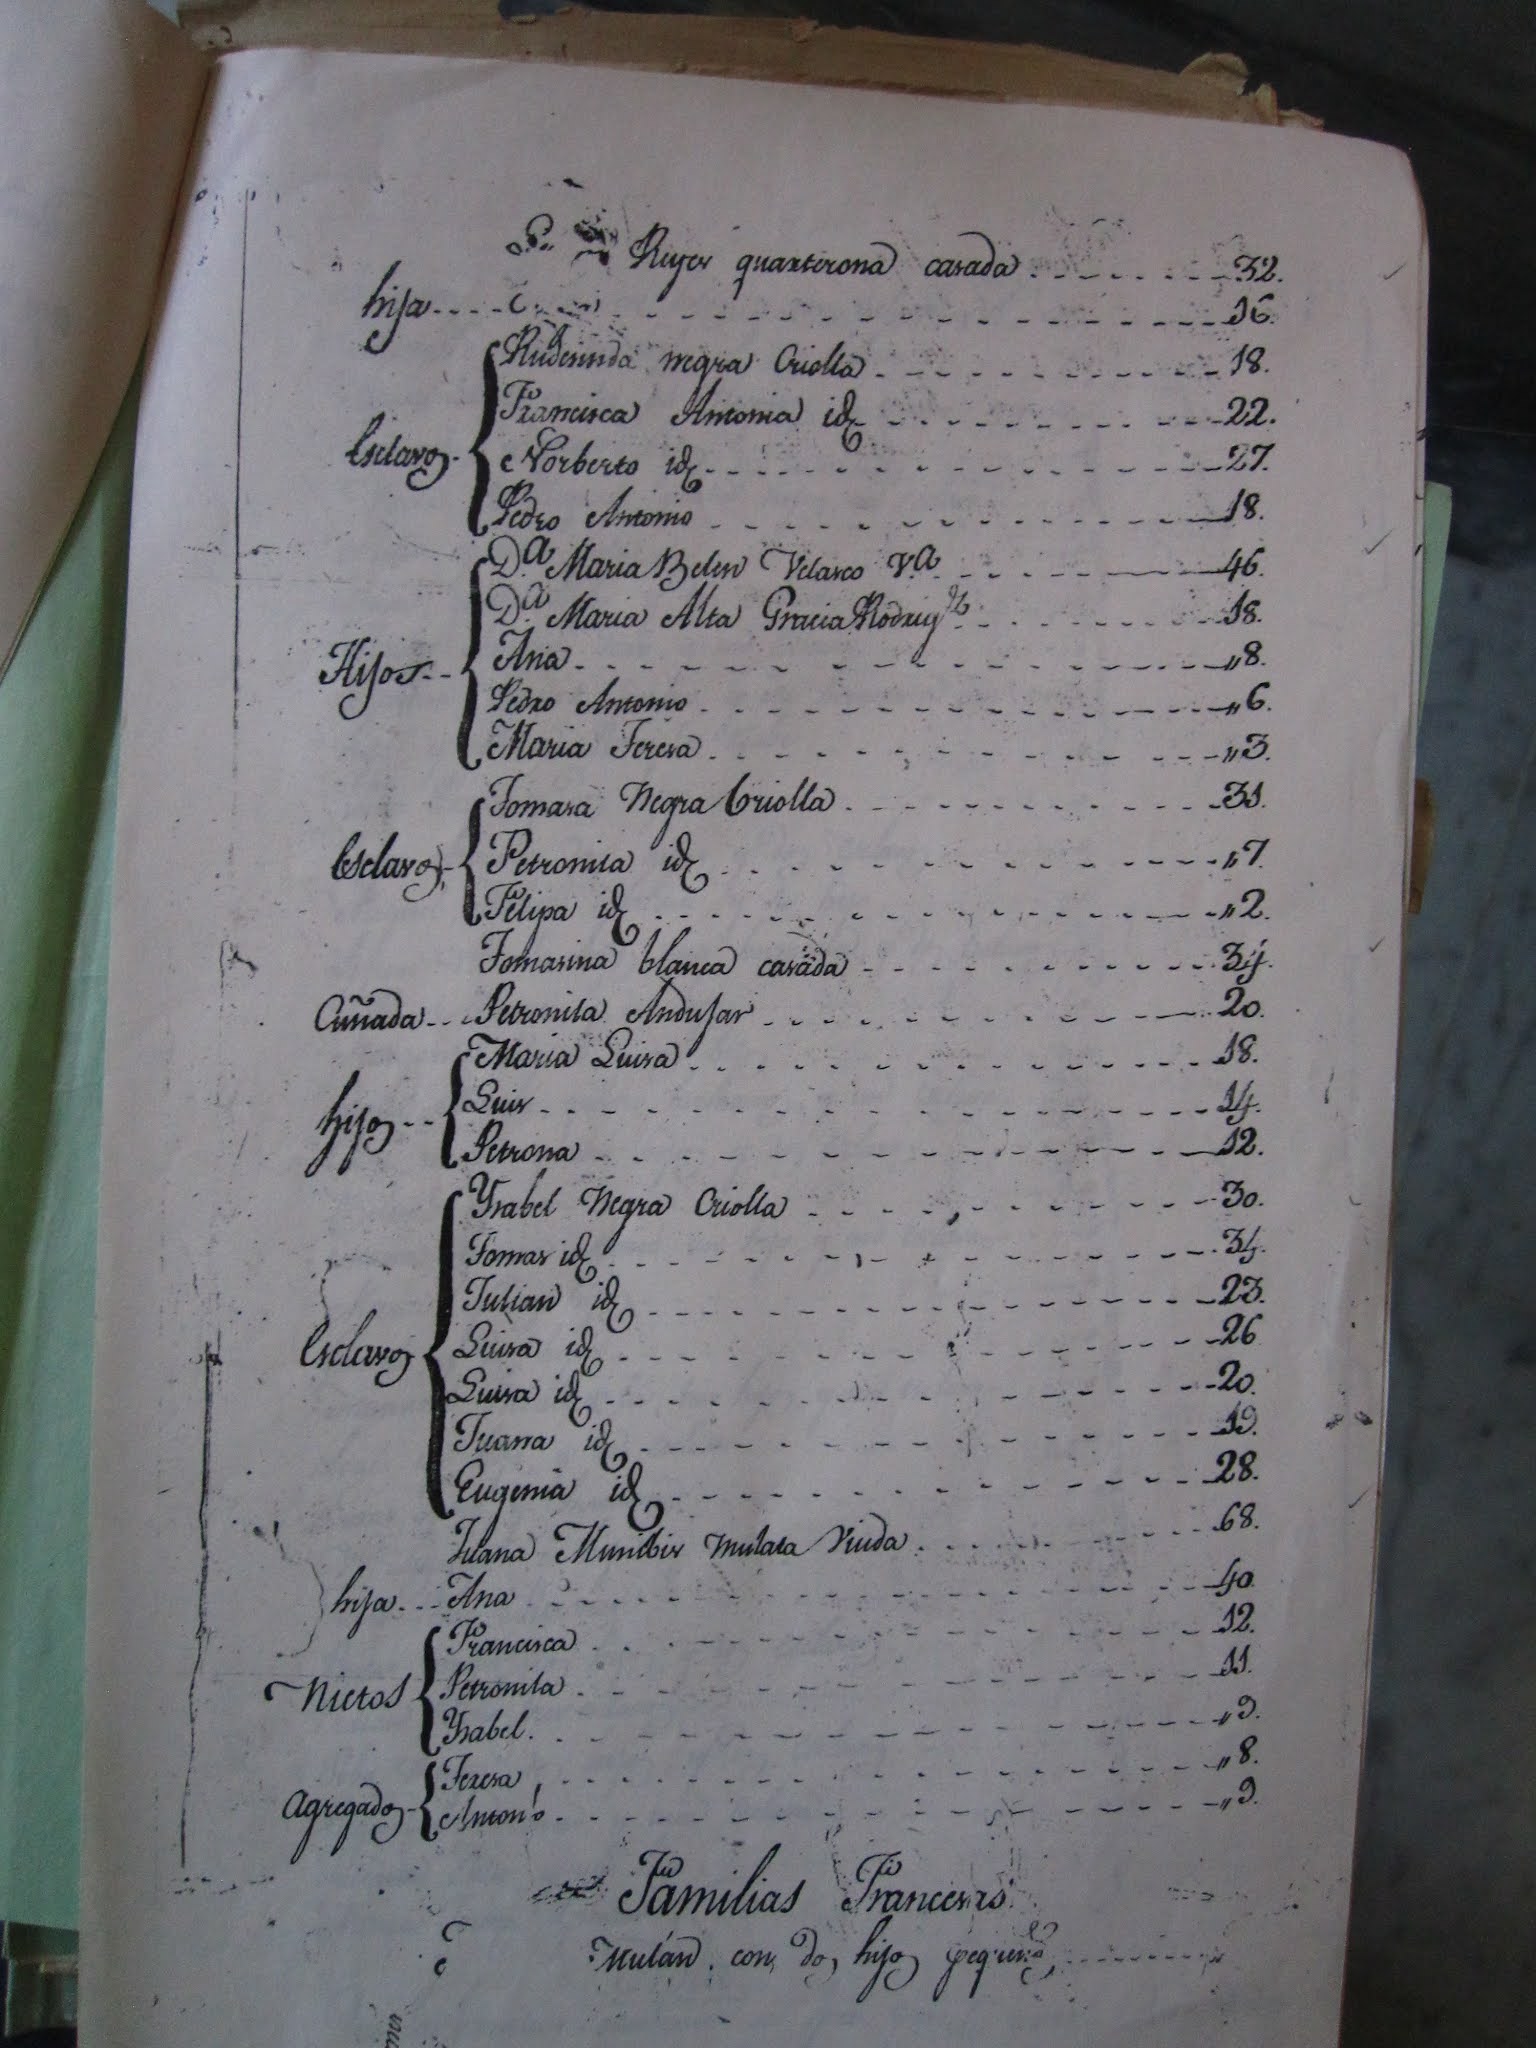 Reyes quarterona casada 32.
hija 16.
Rudesinda negra Criolla 18.
Francisca Antonia id 22.
Esclavos Norberto id 27.
Pedro Antonio 18.
D.a Maria Belen Velasco V.a 46.
D.a Maria Alta Gracia Rodrigz 18.
Hijos Ana "8.
Pedro Antonio "6.
Maria Teresa "3.
Tomasa Negra Criolla 31.
Esclavos Petronila id "7.
Felipa id "2.
Tomasina blanca casada 34.
Cuñada Petronila Andujar 20.
Maria Luisa 18.
hijos Luis 14.
Petrona 12.
Ysabel Negra Criolla 30.
Tomas id 34.
Julian id 23.
Esclavos Luisa id 26
Luisa id 20.
Juana id 19.
Eugenia id 28.
Juana Munibis mulata Viuda 68.
hija Ana 40
Francisca 12.
Nietos Petronila 11.
Ysabel "9.
Teresa "8.
Agregados Antonio "9.
Familias Francesas
con dos hijos pequeños "